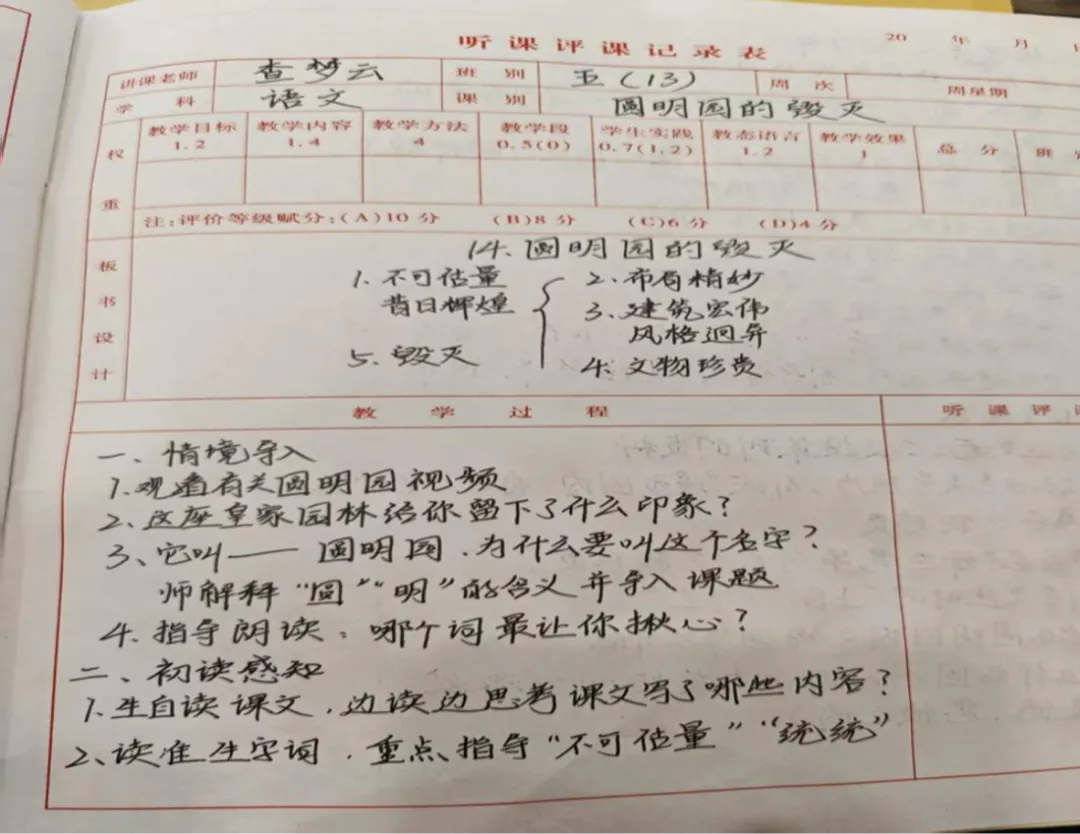 听课评课记录表 20 年 月
讲课老师 查梦云 班别 五(13) 周次 周星期
学科 语文 课别 圆明园的毁灭
权重 教学目标 1.2 教学内容 1.4 教学方法 4 教学段 0.5(0) 学生实践 0.7(1.2) 教态语言 1.2 教学效果 1 总分 班
注:评价等级赋分:(A)10分 (B)8分 (C)6分 (D)4分
板书设计
14.圆明园的毁灭
1.不可估量 2.布局精妙
昔日辉煌 3.建筑宏伟
风格迥异
5.毁灭 4.文物珍贵
教学过程 听课评
一、情境导入
1.观看有关圆明园视频
2、这座皇家园林给你留下了什么印象?
3、它叫——圆明园,为什么要叫这个名字?
师解释“圆”“明”的含义并导入课题
4.指导朗读:哪个词最让你揪心?
二、初读感知
1.生自读课文,边读边思考课文写了哪些内容?
2、读准生字词,重点指导“不可估量”“统统”